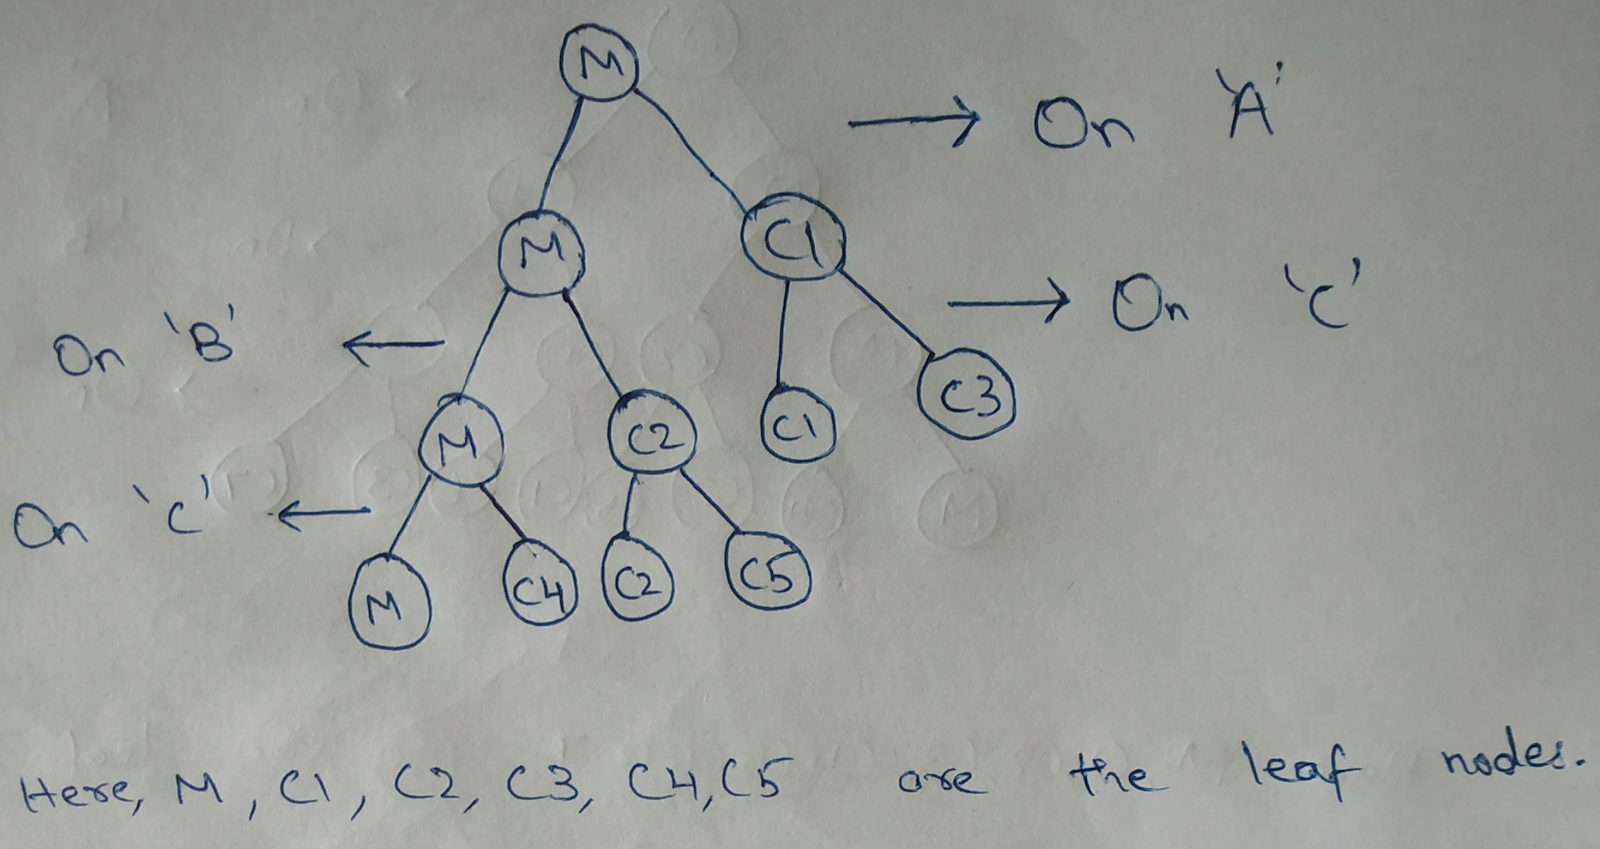 M
On 'A'
M
C1
On 'C'
On 'B'
M
C2
C1
C3
On 'C'
M
C4
C2
C5
Here, M, C1, C2, C3, C4, C5 are the leaf nodes.